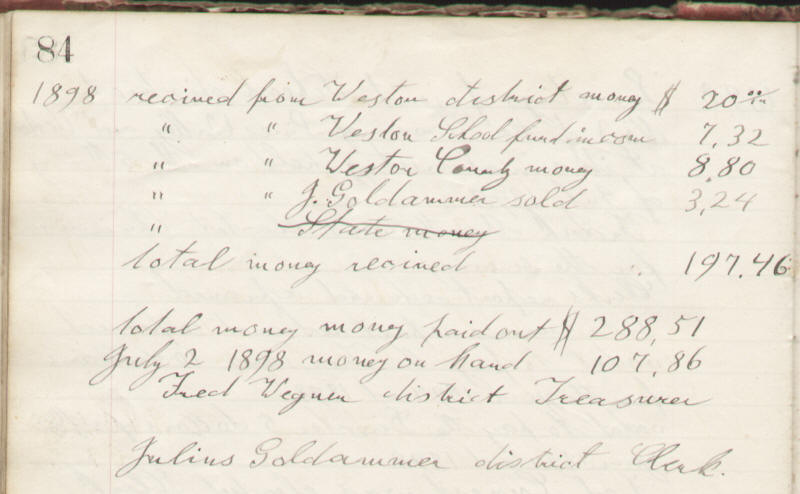 84
1898 recived from Weston district money $ 20.00
" " Weston School fund incom 7,32
" " Weston County money 8,80
" " J. Goldammer sold 3,24
" State money
total money recived " 197.46
total money money paid out $ 288,51
July 2 1898 money on hand 107,86
Fred Wegner district Treasurer
Julius Goldammer district Clerk.